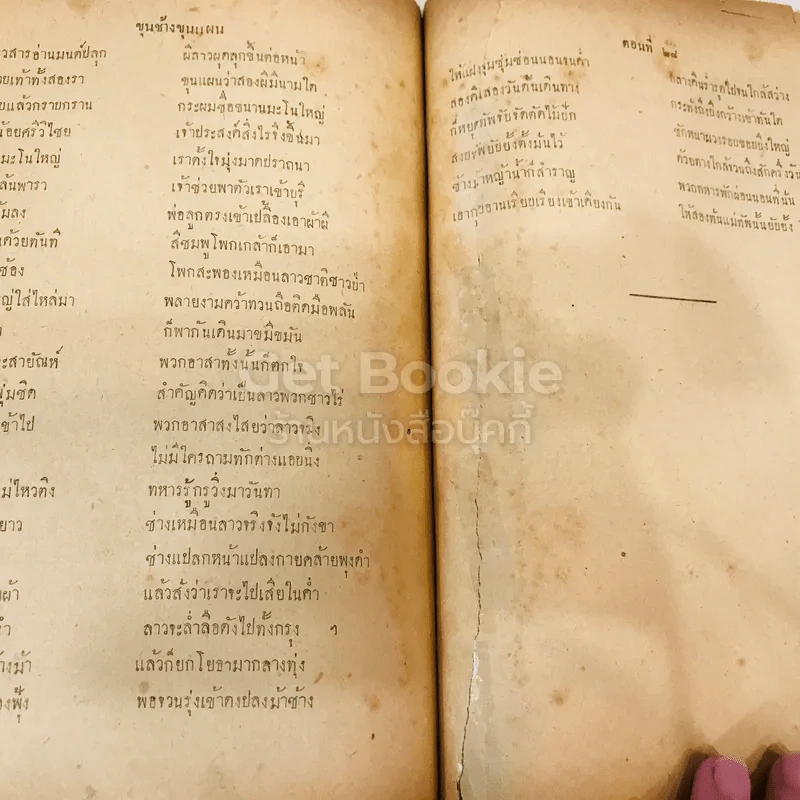 ขุนช้างขุนแผน
วสารอ่านมนต์ปลุก ผีลาวผุดลุกขึ้นต่อหน้า
ยเท้าทั้งสองรา ขุนแผนว่าสองผีมีนามใด
ยแล้วกรายกราน กระผมชื่อขนานมะโนใหญ่
น้อยศรีวิไชย เจ้าประสงค์สิ่งไรจึงขึ้นมา
มะโนใหญ่ เราตั้งใจมุ่งมาดปราถนา
ล้นพารา เจ้าช่วยพาตัวเราเข้าบุรี
ลง พ่อลูกตรงเข้าเปลื้องเอาผ้าผี
นด้วยทันที สีชมพูโพกเกล้าก็เอามา
ซ้อง โพกสะพองเหมือนลาวชาติชาวป่า
ญ่ใส่ไหล่มา พลายงามคว้าทวนถือติดมือพลัน
ก็พากันเดินมาขมีขมัน
ะสายัณห์ พวกอาสาทั้งนั้นก็ตกใจ
พุ่มชิด สำคัญคิดว่าเป็นลาวพวกชาวไร่
ข้าไป พวกอาสาสงไสยว่าลาวจริง
ไม่มีใครถามทักต่างแอยนิ่ง
ม่ไหวติง ทหารรู้กรูวิ่งมาวันทา
ยาว ช่างเหมือนลาวจริงจังไม่กังขา
ช่างแปลกหน้าแปลงกายคล้ายพุงดำ
ผ้า แล้วสั่งว่าเราจะไปเสียในค่ำ
ลาวจะล่ำลือดังไปทั้งกรุง ฯ
างม้า แล้วก็ยกโยธามากลางทุ่ง
งฟุ้ง พอจวนรุ่งเข้าดงปลงม้าช้าง
ตอนที่ ๒๘
ให้แฝงซุ่มซ่อนนอนจนค่ำ กลางคืนร่ำรุดไปจนใกล้สว่าง
สองคืนสองวันดั้นเดินทาง กระทั่งถึงบึงกว้างเข้าทันใด
ก็หยุดทัพจับจัดตัดไม้ปัก ชักหนามวงรอบขอบบึงใหญ่
สงบทัพยับยั้งตั้งมั่นไว้ ด้วยทางใกล้จวนถึงสักครึ่งวัน
ช้างม้าหญ้าน้ำก็สำราญ พวกทหารพักผ่อนนอนที่นั้น
เอากูบอานเรียบเรียงเข้าเคียงกัน ให้สองพันแม่ทัพนั้นยับยั้ง
Get Bookie
ร้านหนังสือบุ๊คกี้